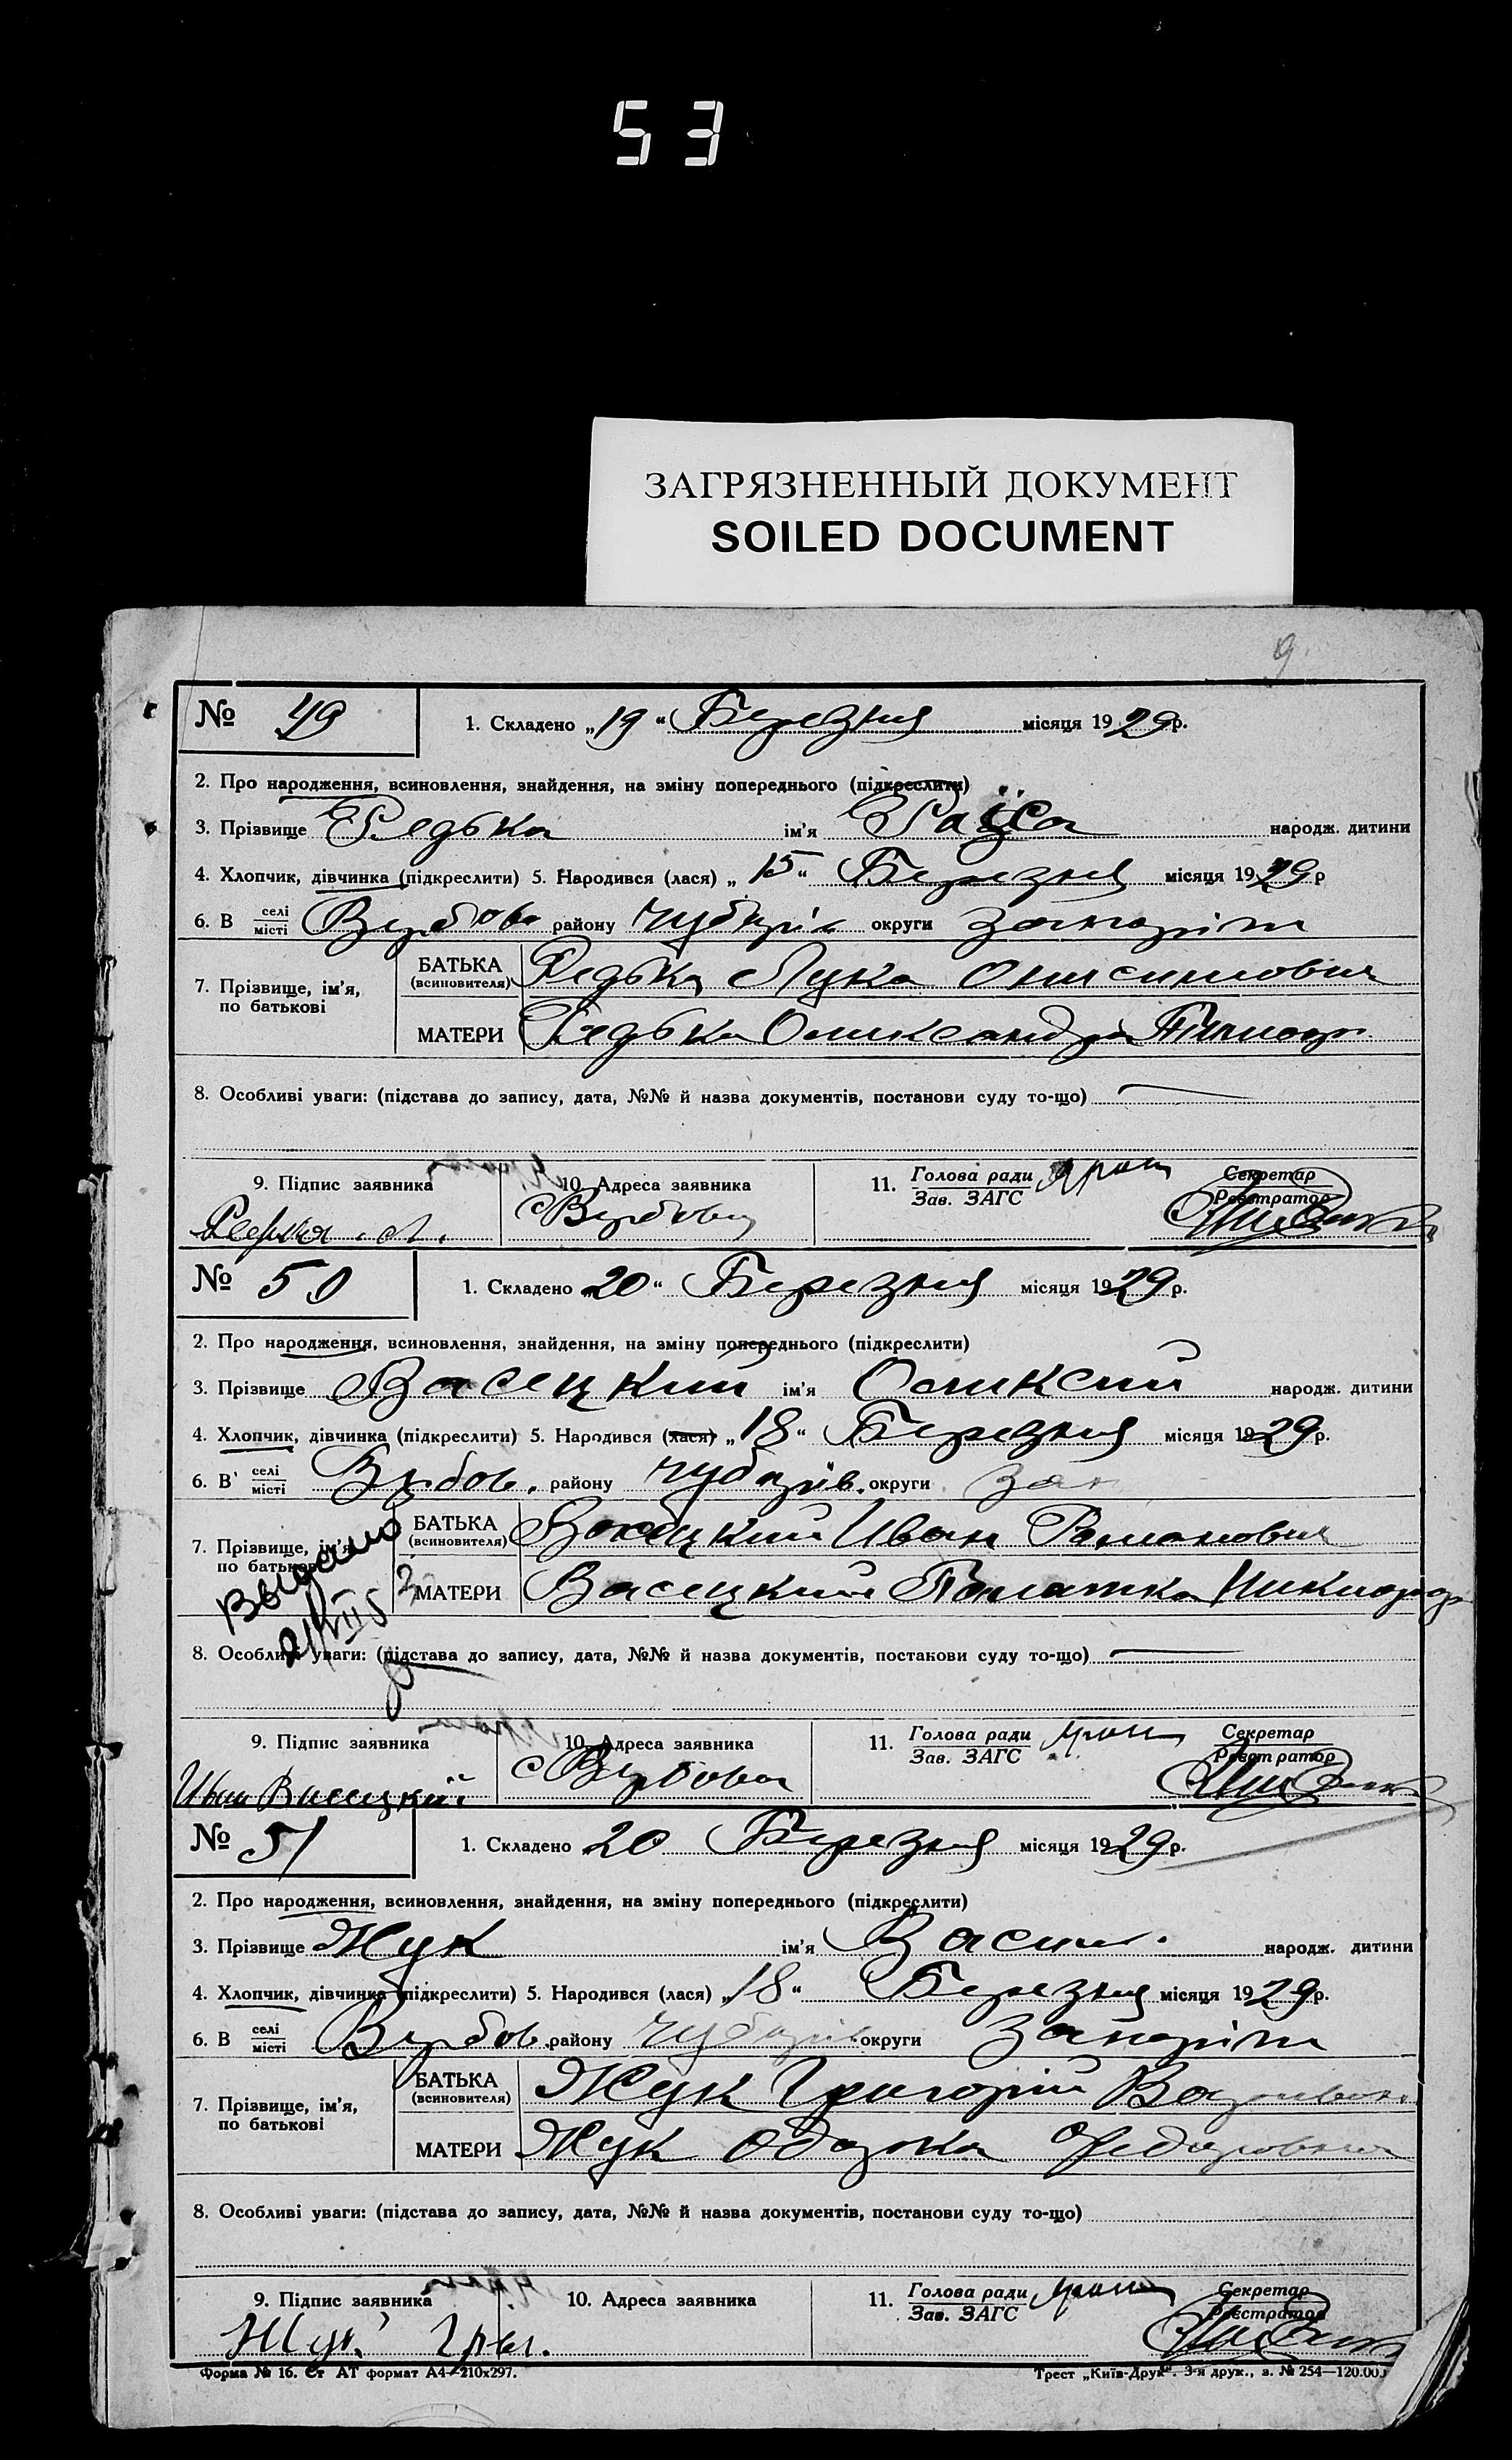 53
ЗАГРЯЗНЕННЫЙ ДОКУМЕНТ
SOILED DOCUMENT
9
№ 49 1. Складено „19“ Березня місяця 1929р.
2. Про народження, всиновлення, знайдення, на зміну попереднього (підкреслити)
3. Прізвище Редька ім'я Раїса народж. дитини
4. Хлопчик, дівчинка (підкреслити) 5. Народився (лася) „15“ Березня місяця 1929р
6. В селі місті Вербова району Чубарів округи Запоріж
7. Прізвище, ім'я, по батькові БАТЬКА (всиновителя) Редька Лука Онисимович
МАТЕРИ Редька Олександра Тимоф.
8. Особливі уваги: (підстава до запису, дата, №№ й назва документів, постанови суду то-що)
9. Підпис заявника 10. Адреса заявника 11. Голова ради Зав. ЗАГС Секретар Реєстратор
Редька Л. с Вербова
№ 50 1. Складено „20“ Березня місяця 1929р.
2. Про народження, всиновлення, знайдення, на зміну попереднього (підкреслити)
3. Прізвище Васецкий ім'я Олексий народж. дитини
4. Хлопчик, дівчинка (підкреслити) 5. Народився (лася) „18“ Березня місяця 1929р.
6. В селі місті Вербов. району Чубарів. округи Зап
7. Прізвище, ім'я, по батькові БАТЬКА (всиновителя) Васецкий Иван Романович
Выдано
МАТЕРИ Васецкий Никифор
8. Особливі уваги: (підстава до запису, дата, №№ й назва документів, постанови суду то-що)
9. Підпис заявника 10. Адреса заявника 11. Голова ради Зав. ЗАГС Секретар Реєстратор
Иван Васецкий с Вербова
№ 51 1. Складено „20 Березня місяця 1929р.
2. Про народження, всиновлення, знайдення, на зміну попереднього (підкреслити)
3. Прізвище Жук ім'я Васил. народж. дитини
4. Хлопчик, дівчинка (підкреслити) 5. Народився (лася) „18“ Березня місяця 1929р.
6. В селі місті Вербов. району Чубарів округи Запоріж
7. Прізвище, ім'я, по батькові БАТЬКА (всиновителя) Жук Григорій
МАТЕРИ Жук Одарка Федоровна
8. Особливі уваги: (підстава до запису, дата, №№ й назва документів, постанови суду то-що)
9. Підпис заявника 10. Адреса заявника 11. Голова ради Зав. ЗАГС Секретар Реєстратор
Жук Григ.
Форма № 16. Ст АТ формат А4—210х297. Трест „Київ-Друк“. 3-я друк., з. № 254—120.00